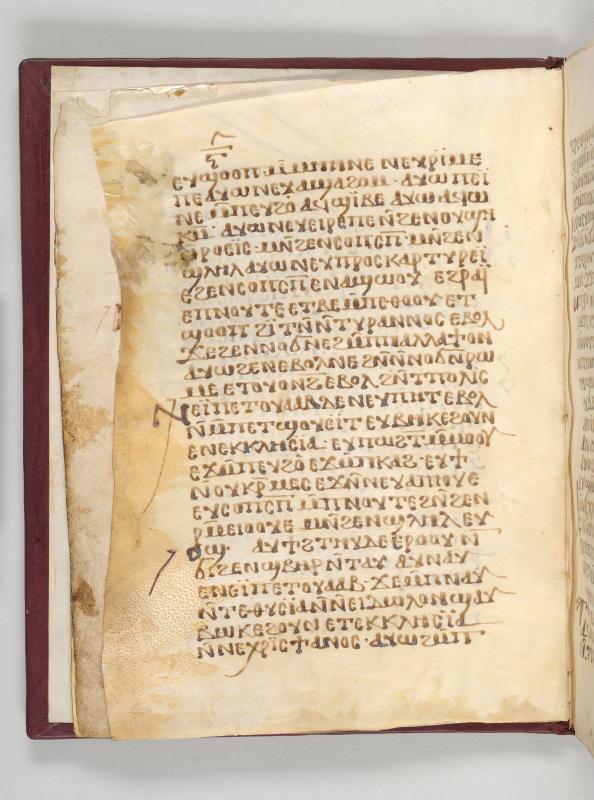 ⲉⲩϣⲟⲟⲡ ⲙ̄ⲙⲏⲏⲛⲉ ⲛⲉⲩⲣⲓⲙⲉ
ⲡⲉ ⲁⲩⲱ ⲛⲉⲩⲁϣⲁϩⲟⲙ· ⲁⲩⲱ ⲡⲉⲓ̈
ⲛⲉ ⲙ̄ⲡⲉⲩϩⲟ ⲁϥϣⲓ̈ⲃⲉ ⲁⲩⲱ ⲁϥⲱ
ⲕⲙ̄· ⲁⲩⲱ ⲛⲉⲩⲉⲓⲣⲉ ⲡⲉ ⲛ̄ϩⲉⲛⲟⲩϣⲏ
ⲛ̄ⲣⲟⲉⲓ̈ⲥ· ⲙⲛ̄ϩⲉⲛⲥⲟⲡⲥⲡ̄· ⲙⲛ̄ϩⲉⲛ
ϣⲗⲏⲗ ⲁⲩⲱ ⲛⲉⲩⲡⲣⲟⲥⲕⲁⲣⲧⲩⲣⲉⲓ̈
ⲉϩⲉⲛⲥⲟⲡⲥⲡ ⲉⲛⲁϣⲱⲟⲩ ⲉϩⲣⲁⲓ̈
ⲉⲡⲛⲟⲩⲧⲉ ⲉⲧⲃⲉ ⲙ̄ⲡⲉⲑⲟⲟⲩ ⲉⲧ
ϣⲟⲟⲡ ϩⲓⲧⲛ̄ ⲛ̄ⲧⲩⲣⲁⲛⲛⲟⲥ ⲉⲃⲟⲗ
ϫⲉ ϩⲉⲛⲛⲟϭ ⲛⲉ ϩⲙ̄ⲡⲡⲁⲗⲗⲁϯⲟⲛ
ⲁⲩⲱ ϩⲉⲛⲉⲃⲟⲗ ⲛⲉ ϩⲛ̄ⲛ̄ⲛⲟϭ ⲛ̄ⲣⲱ
ⲙⲉ ⲉⲧⲟⲩⲟⲛϩ ⲉⲃⲟⲗ ϩⲛ̄ⲧⲡⲟⲗⲓⲥ
ⲛⲉⲓ̈ⲡⲉⲧⲟⲩⲁⲁⲃ ⲇⲉ ⲛⲉⲩⲡⲏⲧ ⲉⲃⲟⲗ
ⲛ̄ⲙ̄ⲡⲉⲧϣⲟⲩⲉⲓⲧ ⲉⲩⲃⲏⲕ ⲉϩⲟⲩⲛ
ⲉⲛⲉⲕⲕⲗⲏⲥⲓⲁ· ⲉⲩⲡⲱϩⲧ ⲙ̄ⲙⲟⲟⲩ
ⲉϫⲙ̄ⲡⲉⲩϩⲟ ⲉϫⲙ̄ⲡⲕⲁϩ· ⲉⲩϯ
ⲛⲟⲩⲕⲣⲙⲉⲥ ⲉϫⲛ̄ⲛⲉⲩⲁⲡⲏⲩⲉ
ⲉⲩⲥⲟⲡⲥⲡ̄ ⲙ̄ⲡⲛⲟⲩⲧⲉ ϩⲛ̄ϩⲉⲛ
ⲣⲙ̄ⲉⲓⲟⲟⲩⲉ ⲙⲛ̄ϩⲉⲛϣⲗⲏⲗ ⲉⲩ
ⲟϣ· ⲁⲩϯϩⲧⲏⲩ ⲇⲉ ⲉⲣⲟⲟⲩ ⲛ̄
ϭⲓϩⲉⲛϣⲃⲏⲣ ⲛ̄ⲧⲁⲩ ⲁⲩⲛⲁⲩ
ⲉⲛⲉⲓ̈ⲡⲉⲧⲟⲩⲁⲁⲃ· ϫⲉ ⲙ̄ⲡⲛⲁⲩ
ⲛ̄ⲧⲉⲑⲩⲥⲓⲁ ⲛ̄ⲛⲉⲓⲇⲱⲗⲟⲛ ϣⲁⲩ
ⲃⲱⲕ ⲉϩⲟⲩⲛ ⲉⲧⲉⲕⲕⲗⲏⲥⲓⲁ
ⲛ̄ⲛⲉⲭⲣⲓⲥϯⲁⲛⲟⲥ· ⲁⲩⲱ ϩⲙ̄ⲡ